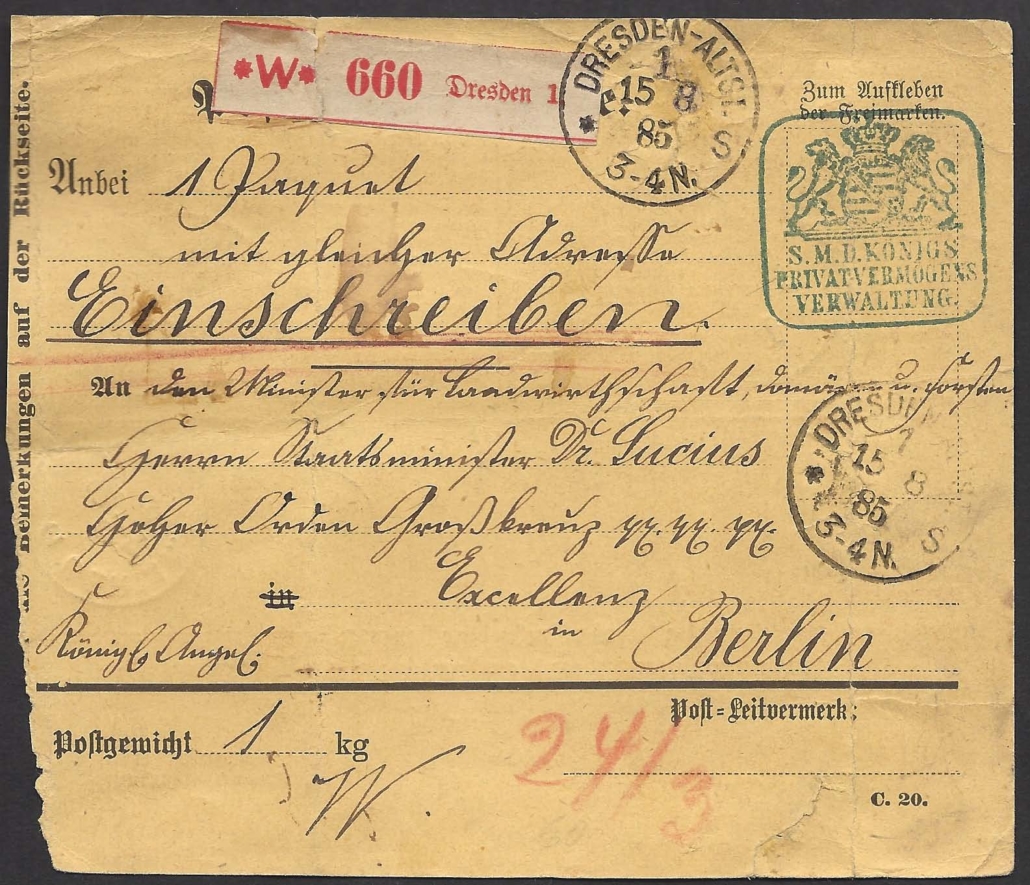 *W* 660 Dresden 1
DRESDEN-ALTST.
1
15 8
85
3-4 N.
S
Zum Aufkleben
der Freimarken.
S. M. D. KÖNIGS
PRIVATVERMÖGENS
VERWALTUNG.
Anbei 1 Paquet
mit gleicher Adresse
Einschreiben.
An den Minister für Landwirthschaft, Domänen u. Forsten
Herrn Staatsminister Dr. Lucius
Hoher Orden Großkreuz pp. pp. pp.
in Excellenz
in Berlin
Königl. Angel.
DRESDEN
1
15 8
85
3-4 N.
S
Postgewicht 1 kg
Post=Leitvermerk:
24/3
C. 20.
Bemerkungen auf der Rückseite.